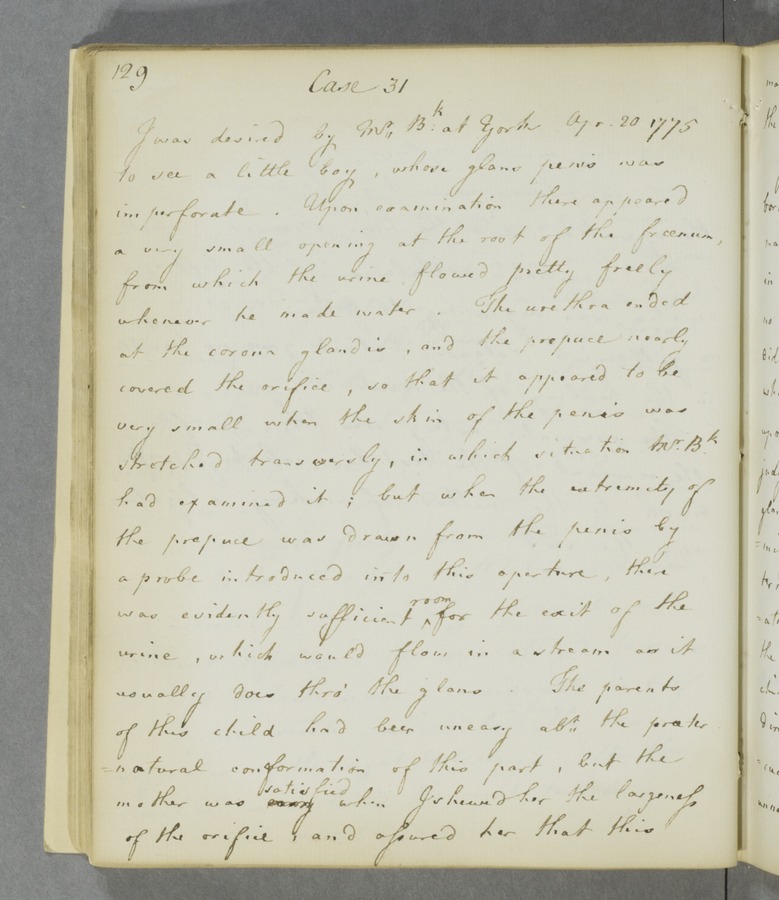 129
Case 31
I was desired by Mr. B.k at York Apr. 20 1775
to see a little boy, whose glans penis was
imperforate. Upon examination there appeared
a very small opening at the root of the frœnum,
from which the urine flowed pretty freely
whenever he made water. The urethra ended
at the corona glandis, and the prepuce nearly
covered the orifice, so that it appeared to be
very small when the skin of the penis was
stretched transversly, in which situation Mr. B.k
had examined it; but when the extremity of
the prepuce was drawn from the penis by
a probe introduced into this aperture, there
was evidently sufficient room for the exit of the
urine, which would flow in a stream as it
usually does thro' the glans. The parents
of this child had been uneasy abt. the præter
=natural conformation of this part, but the
mother was satisfied when I shewed her the largeness
of the orifice; and assured her that this